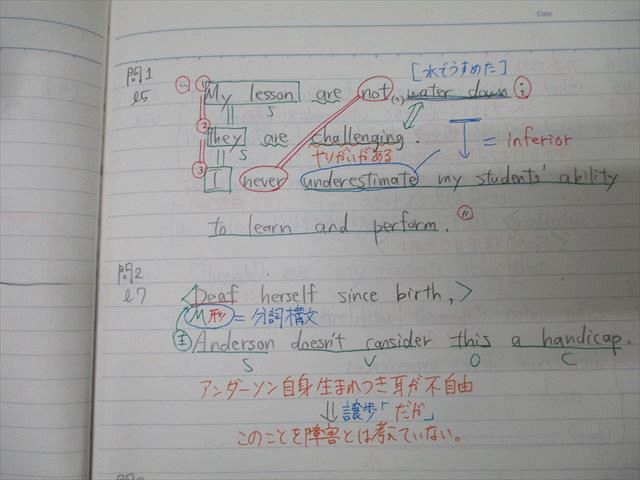 Date
[水でうすめた]
問1 ① My lesson are not (1) water down ;
l5 S
② they are challenging.
S やりがいがある = inferior
③ I never underestimate my students' ability
to learn and perform.
問2
l7 <Deaf herself since birth,>
M 形 = 分詞構文
主 Anderson doesn't consider this a handicap.
S V O C
アンダーソン自身生まれつき耳が不自由
⇓ 譲歩「だが」
このことを障害とは考えていない。